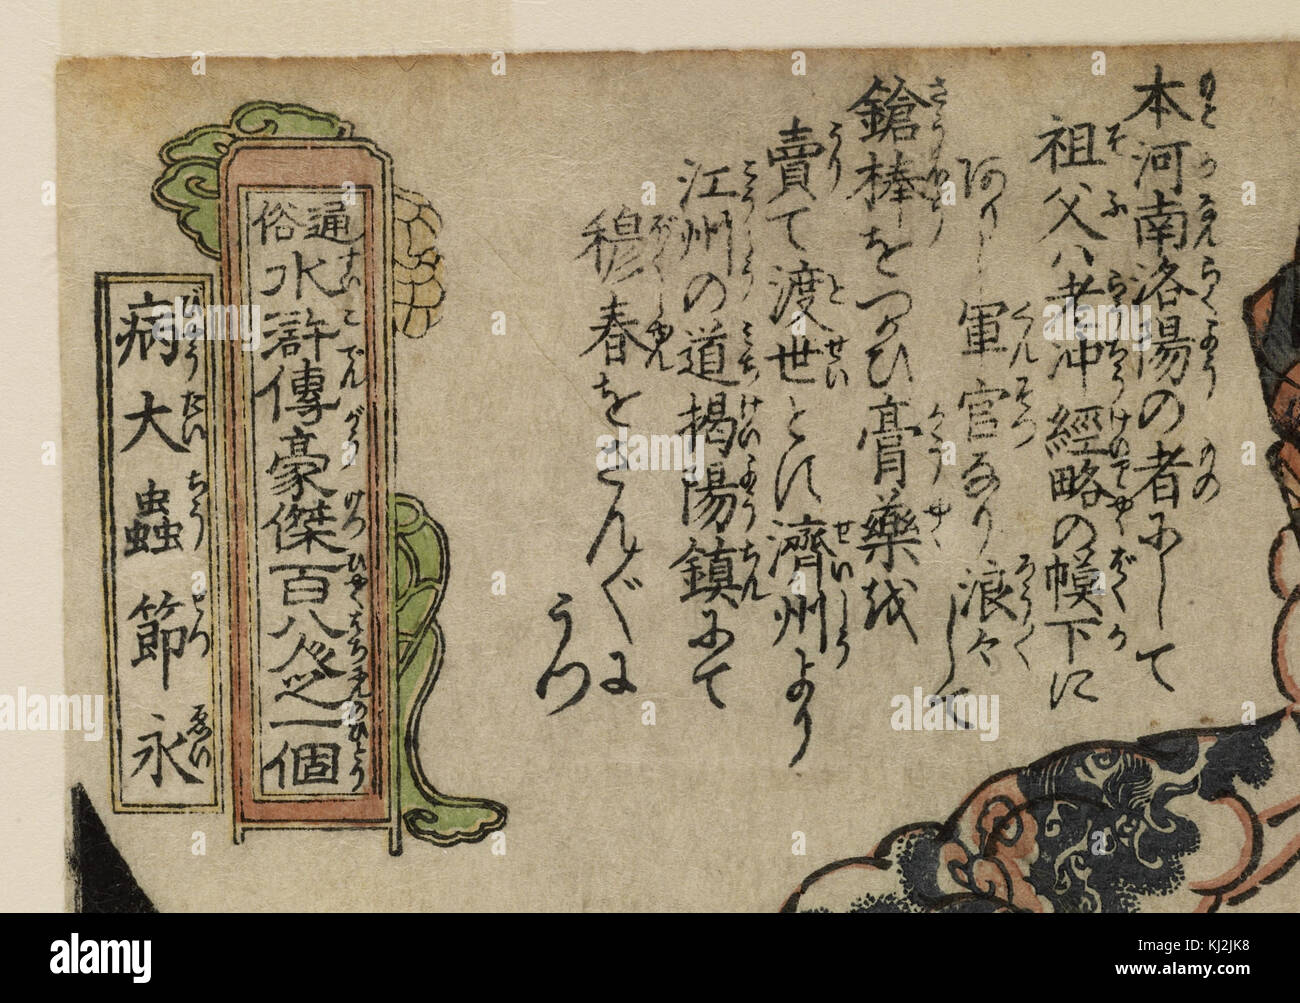 本河南洛陽の者にして
祖父ハ老冲經略の幙下に
ありし軍官なり浪々して
鎗棒をつかひ膏藥を
賣て渡世とし濟州より
江州の道掲陽鎮にて
穆春をさんぐに
うつ
通俗水滸傳豪傑百八人之一個
病大蟲節永
alamy
KJ2JK8
www.alamy.com